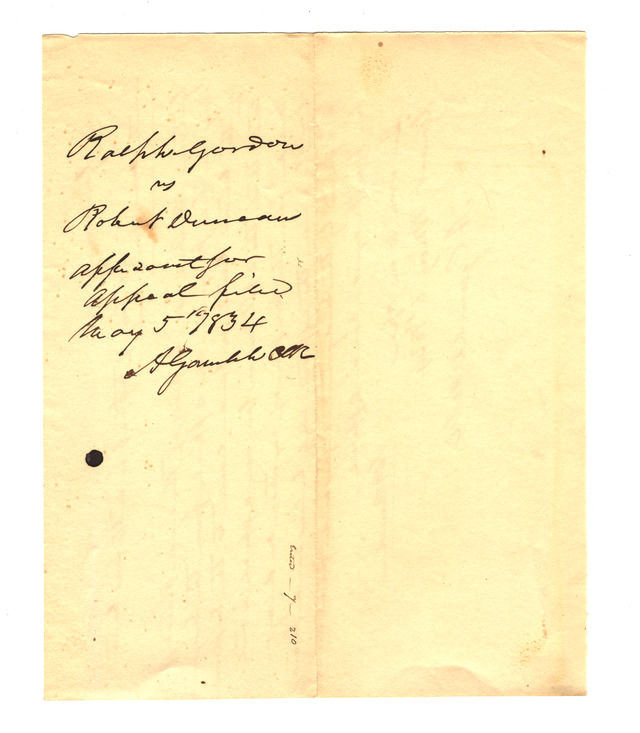 Ralph Gordon
vs
Robert Duncan
appeal filed
May 5th 1834
A Gamble Clk
— 7 — 210